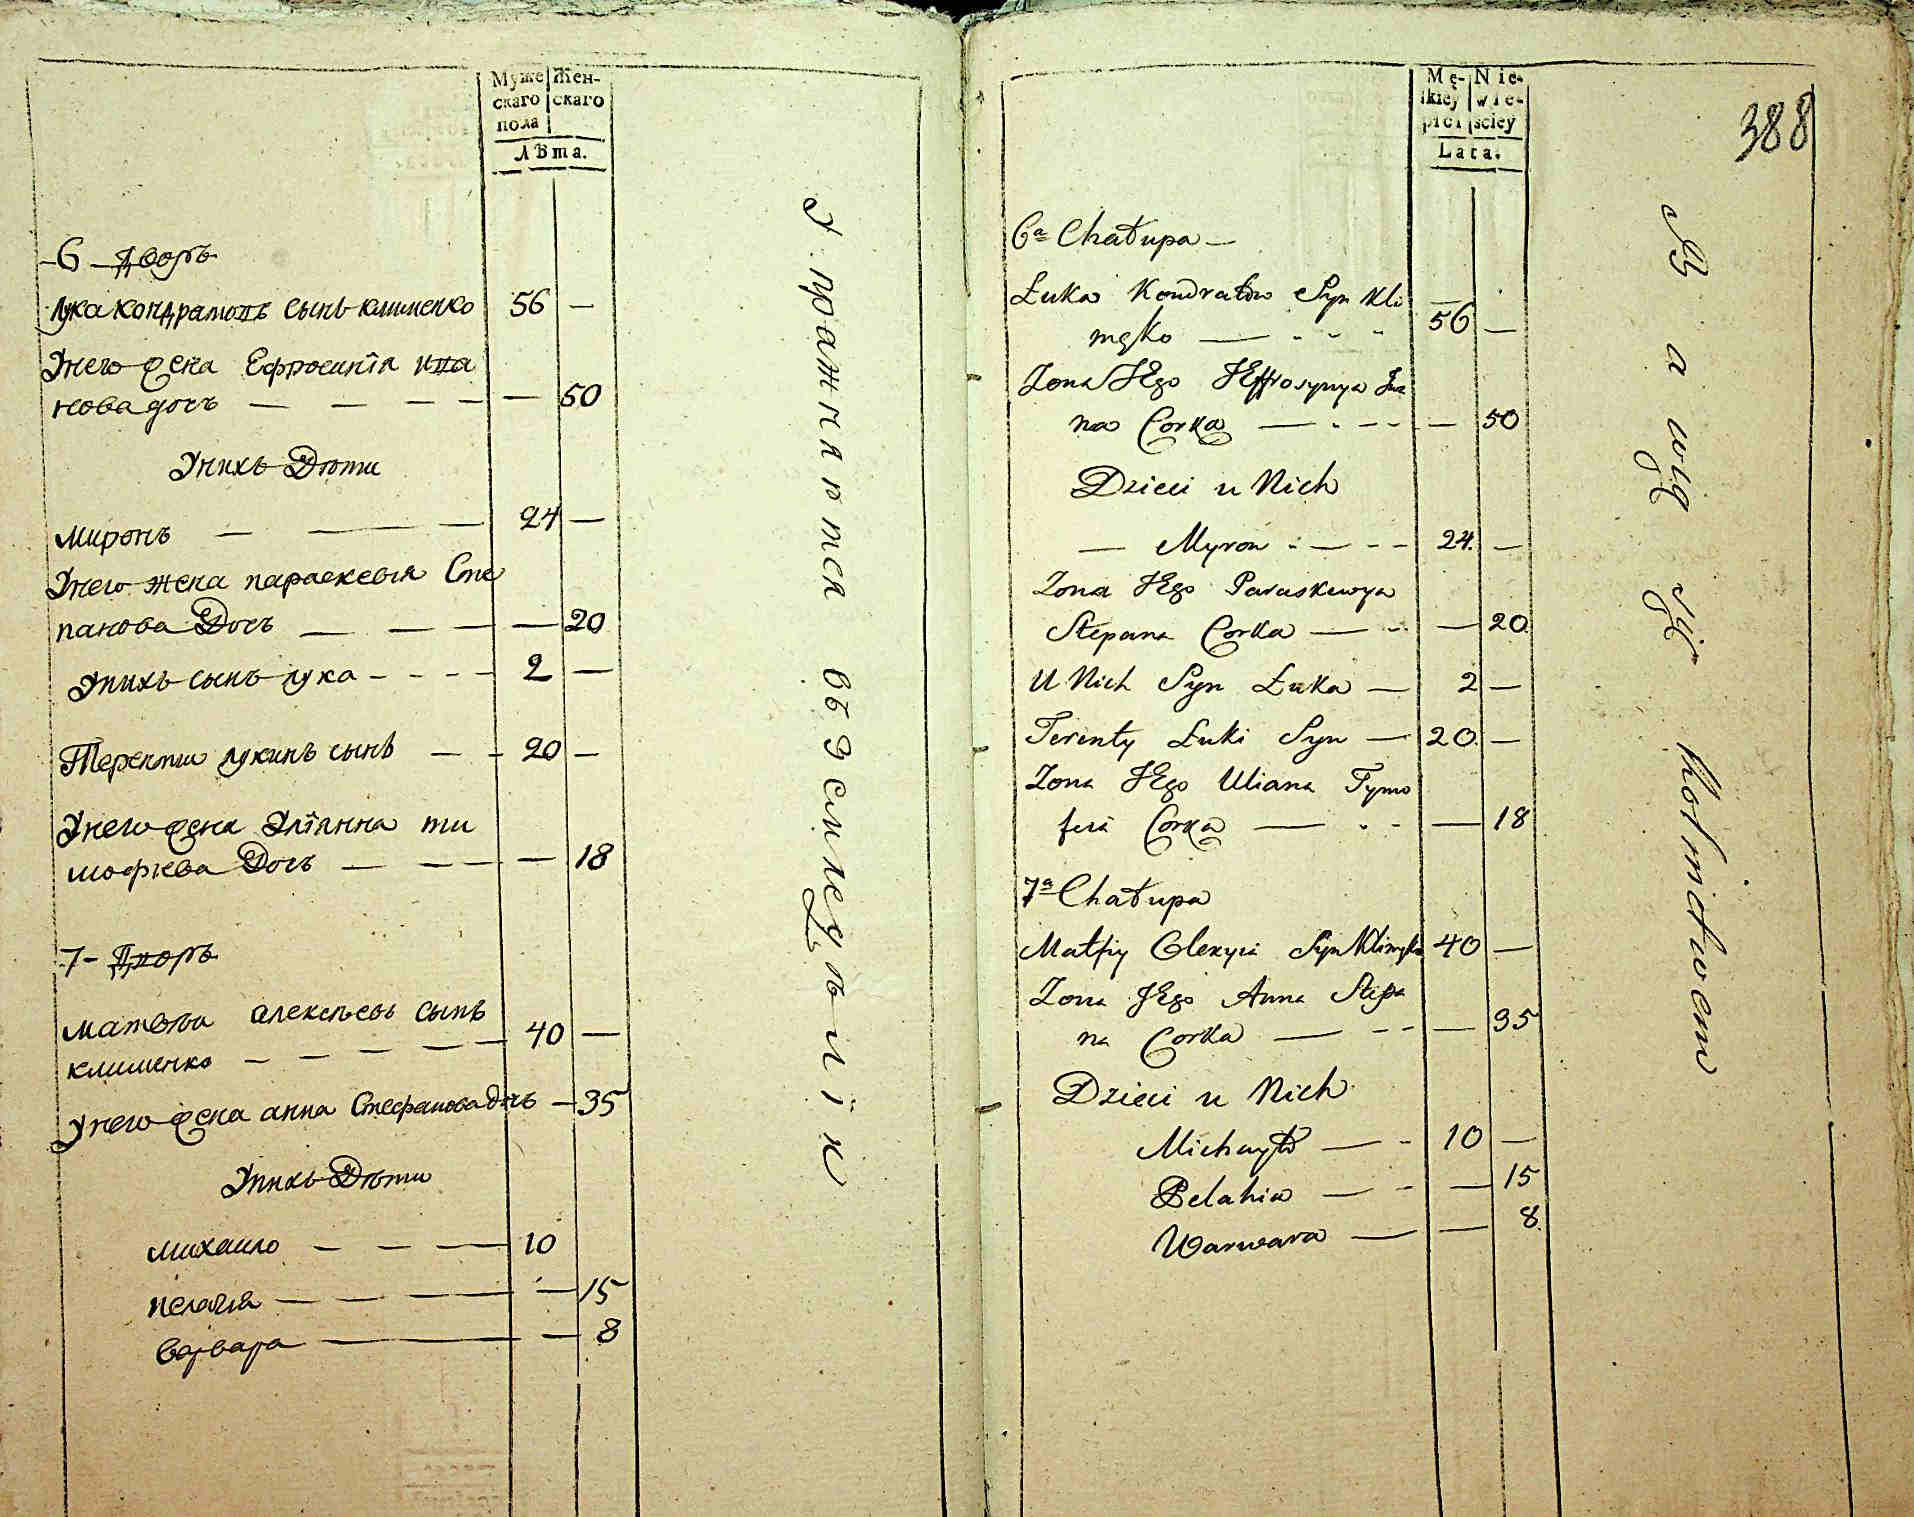 Муже
скаго
пола
Жен-
скаго
Лѣта.
6 Дворъ
Лука Кондратовъ сынъ Клименко 56 —
У него жена Ефросинїя Ива
нова дочь — — — — — 50
У нихъ Дѣти
Миронъ — — — 24 —
У него жена Параскевїя Сте
панова Дочь — — — — 20
У нихъ сынъ Лука - - - - 2 —
Терентии Лукинъ сынъ — - 20 —
У него жена Улїянна Ти
мофѣева Дочь — — — — 18
7 - Дворъ
Матвѣи Алексѣевъ сынъ
Клименко — — — — — 40 —
У него жена Анна Стефанова дочь — 35
У нихъ Дѣти
Михаило — — — 10
Пелагїя — — — — — 15
Варвара — — 8
Упражняются въ Земледѣлїи
Mę-
skiey
płci
Nie-
wie-
sciey
Lata.
388
6a Chałupa —
Łuka Kondratow Syn Kli
męko — - - - 56 —
Zona JEgo JEffrosynya Iwa
na Corka — - - - — 50
Dzieci u Nich
— Myron - — - - 24. —
Zona JEgo Paraskewya
Stepana Corka — - - — 20
U Nich Syn Łuka — 2 —
Terenty Łuki Syn — 20. —
Zona JEgo Uliana Tymo
feia Corka — - - — 18
7a Chałupa
Matfiy Olexyia Syn Klimęko 40 —
Zona JEgo Anna Stepa
na Corka — - - — 35
Dzieci u Nich
Michayło — - 10 —
Pelahia — - — 15
Warwara — — 8.
Bawią się Rolnictwem